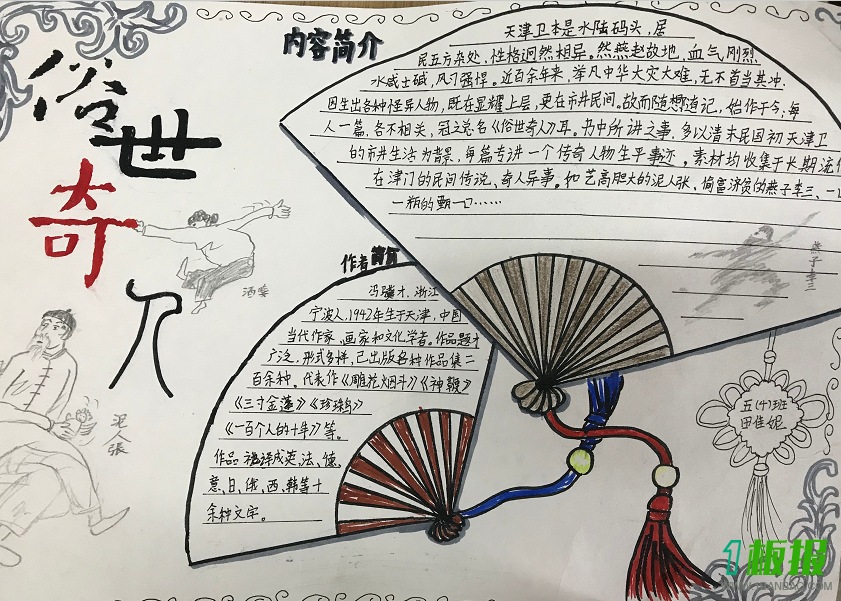 俗世奇人
内容简介
天津卫本是水陆码头,居
民五方杂处,性格迥然相异。然燕赵故地,血气刚烈
水咸土碱,风习强悍。近百余年来,举凡中华大灾大难,无不首当其冲,
因生出各种怪异人物,既在显耀上层,更在市井民间。故而随想随记,始作于今;每
人一篇,各不相关,冠之总名《俗世奇人》耳。书中所讲之事,多以清末民国初天津卫
的市井生活为背景,每篇专讲一个传奇人物生平事迹。素材均收集于长期流
在津门的民间传说、奇人异事。如艺高胆大的泥人张,偷富济贫的燕子李三、一
酒婆
泥人張
燕子李三
作者简介
冯骥才,浙江
宁波人,1942年生于天津,中国
当代作家、画家和文化学者。作品题才
广泛,形式多样,已出版各种作品集二
百余种,代表作《雕花烟斗》《神鞭》
《三寸金莲》《珍珠鸟》
《一百个人的十年》等。
作品被译成英、法、德、
意、日、俄、西、韩等十
余种文字。
五(4)班
田佳妮
1板报